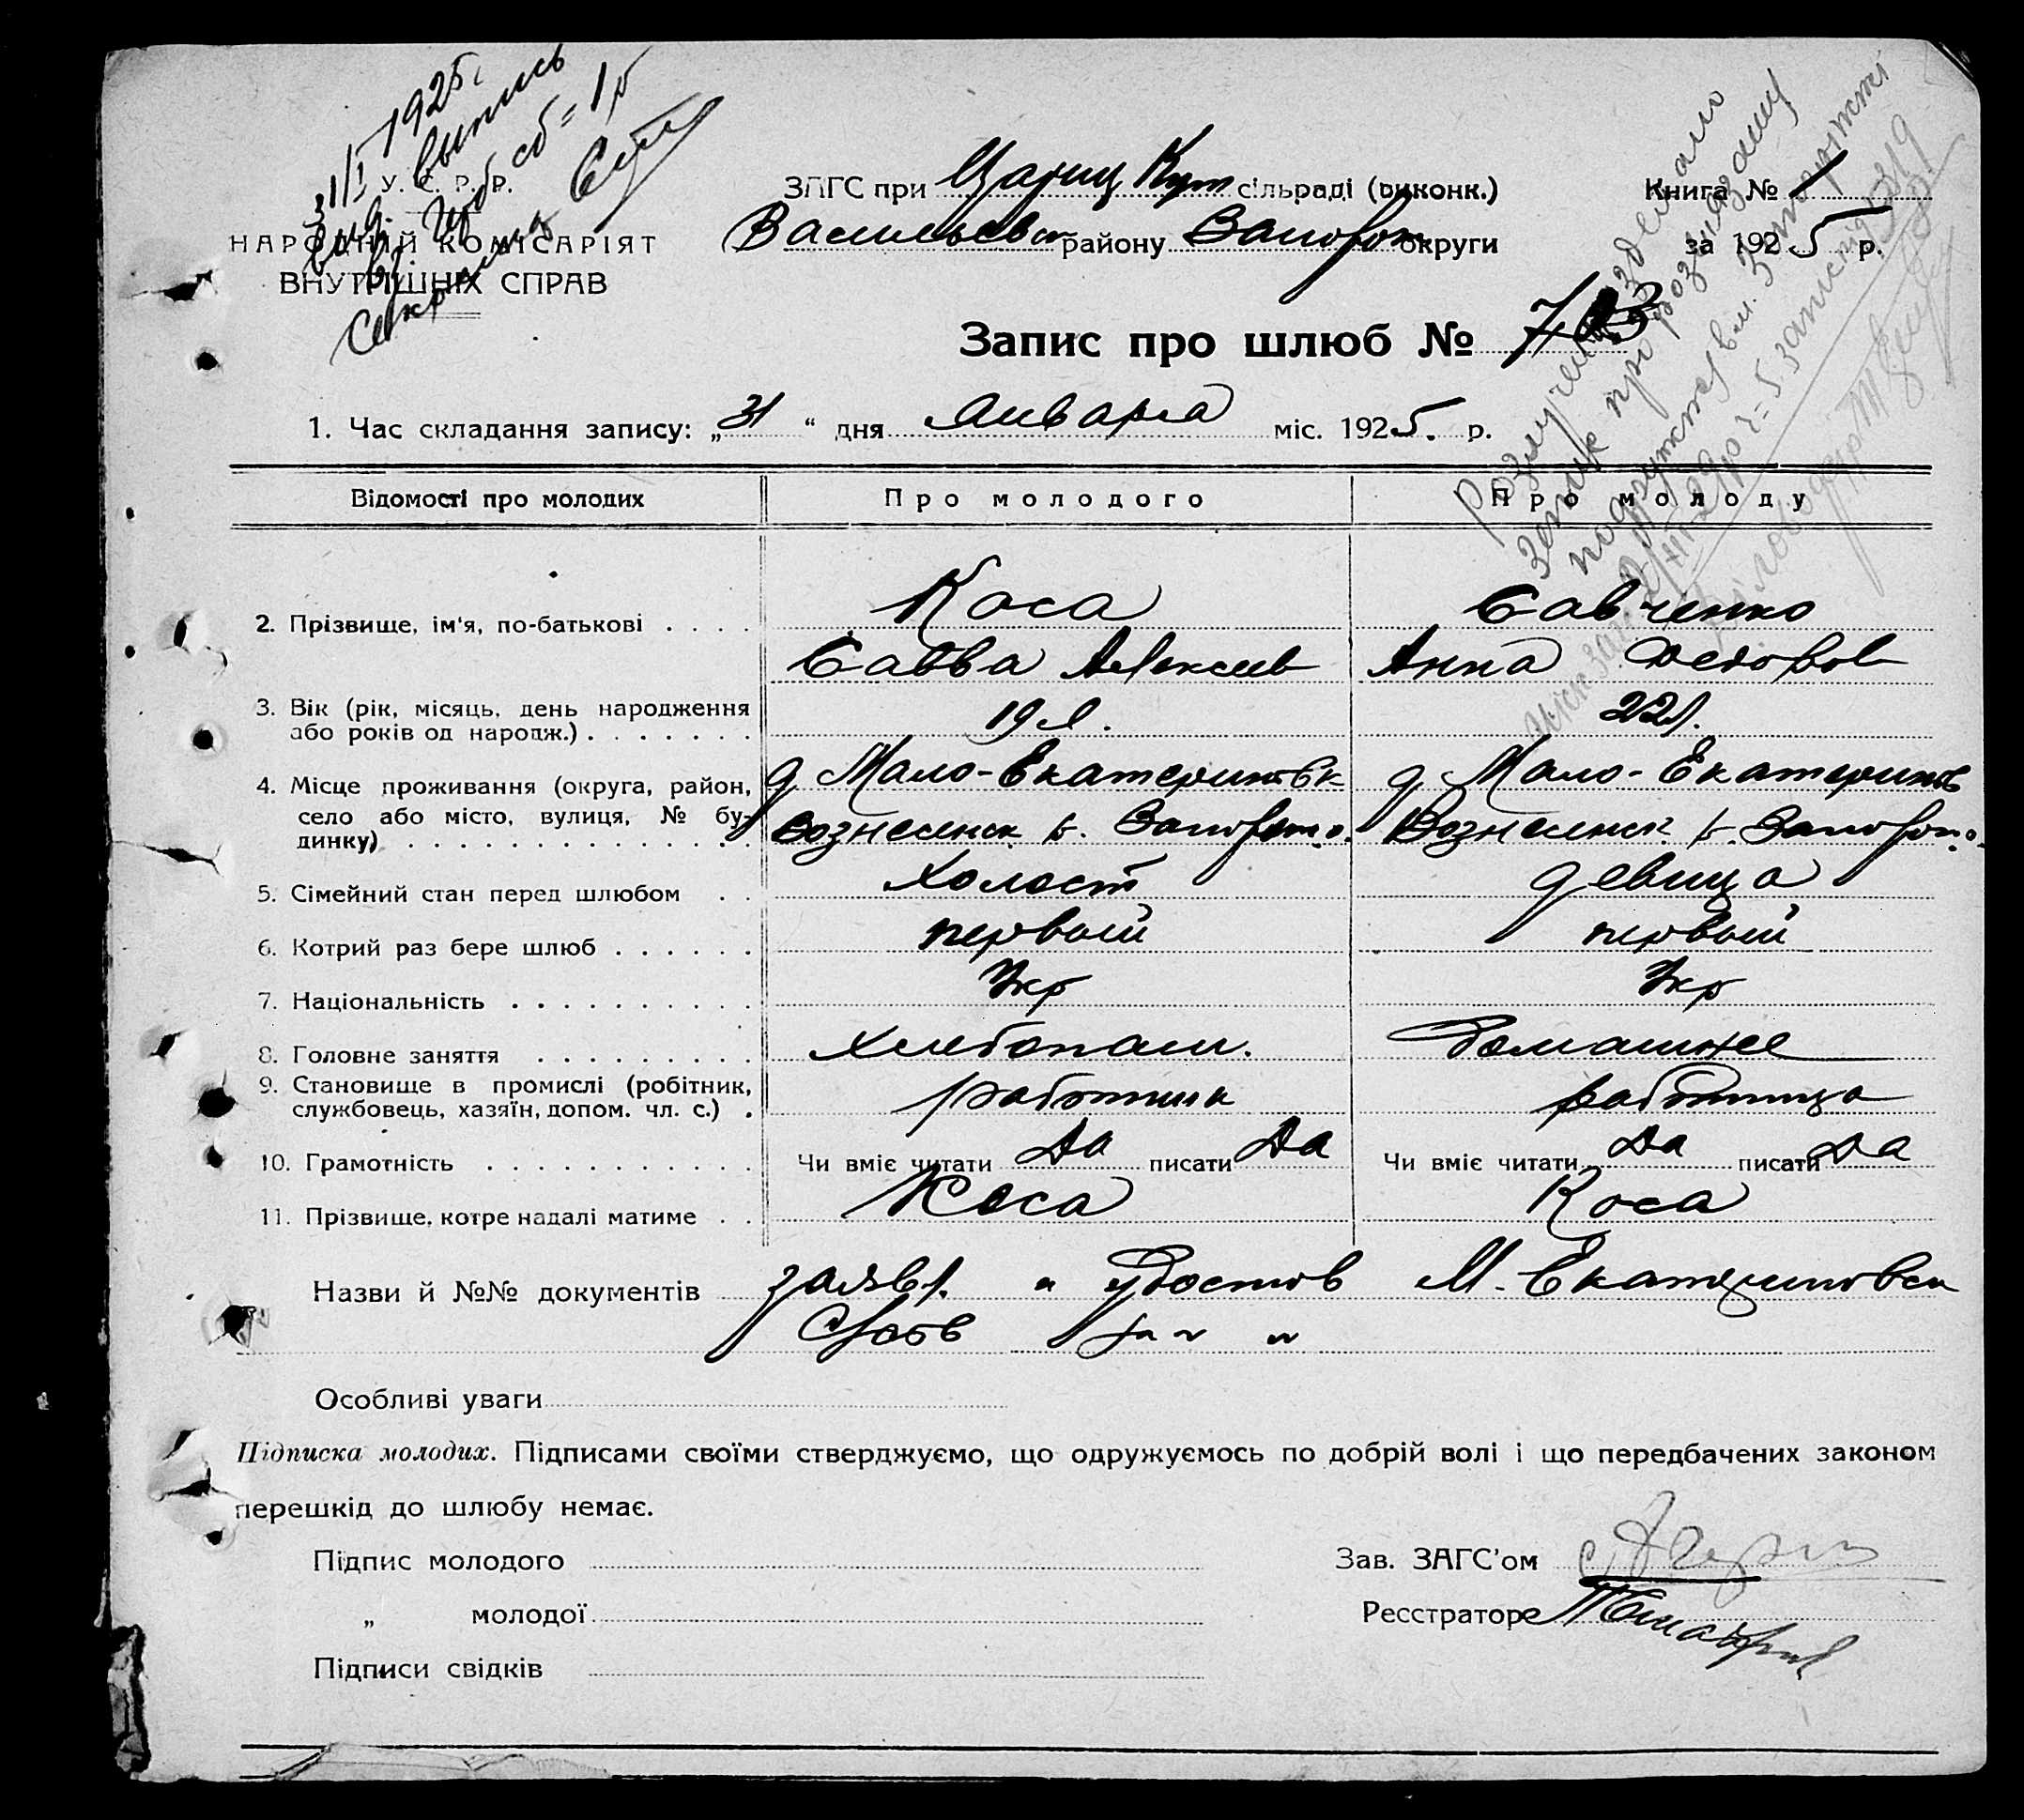 31/I 1925.
выпись
У. С. Р. Р.
НАРОДНІЙ КОМІСАРІЯТ
ВНУТРІШНІХ СПРАВ
ЗАГС при Цариц Кут сільраді (виконк.)
Васильевск району Запорож округи
Книга №
за 1925 р.
Запис про шлюб № 7
1. Час складання запису: „31“ дня Января міс. 1925. р.
Відомості про молодих Про молодого Про молоду
2. Прізвище, ім'я, по-батькові Коса Савченко
Савва Алексеев Анна Федоров
3. Вік (рік, місяць, день народження
або років од народж.) 19 л. 22 л.
4. Місце проживання (округа, район, д Мало-Екатериновк д Мало-Екатеринов
село або місто, вулиця, № бу- Вознесенск р. Запорож о. Вознесенск р. Запорож о.
динку)
5. Сімейний стан перед шлюбом холост девица
6. Котрий раз бере шлюб первый первый
7. Національність Укр Укр
8. Головне заняття хлебопаш. Домашнее
9. Становище в промислі (робітник,
службовець, хазяїн, допом. чл. с.) работник работница
10. Грамотність Чи вміє читати Да писати Да Чи вміє читати Да писати Да
11. Прізвище, котре надалі матиме Коса Коса
Назви й №№ документів заявл. и удостов М-Екатериновск
Особливі уваги
Підписка молодих. Підписами своїми стверджуємо, що одружуємось по добрій волі і що передбачених законом
перешкід до шлюбу немає.
Підпис молодого
Зав. ЗАГС'ом
„ молодої
Реєстратор
Підписи свідків